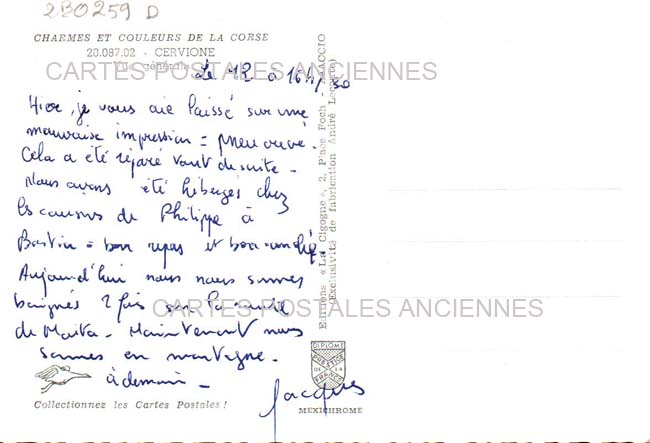 2B0259 D
CHARMES ET COULEURS DE LA CORSE
20.087.02 - CERVIONE
Vue générale
CARTES POSTALES ANCIENNES
Le 12 à 16h/30
Hier, je vous aie laissé sur une
mauvaise impression = pneu crevé.
Cela a été réparé tout de suite -
Nous avons été hébergés chez
les cousins de Philippe à
Bastia = bon repas et bon
Aujourd'hui nous nous sommes
baignés 2 fois sur la
CARTES POSTALES ANCIENNES
de Maintenant nous
sommes en montagne -
à demain -
Jacques
Collectionnez les Cartes Postales !
Editions « La Cigogne », 2, Place Foch - AJACCIO
(Exclusivité de fabrication André Leconte)
DIPLOME
DE LA
FRANCE
MEXICHROME